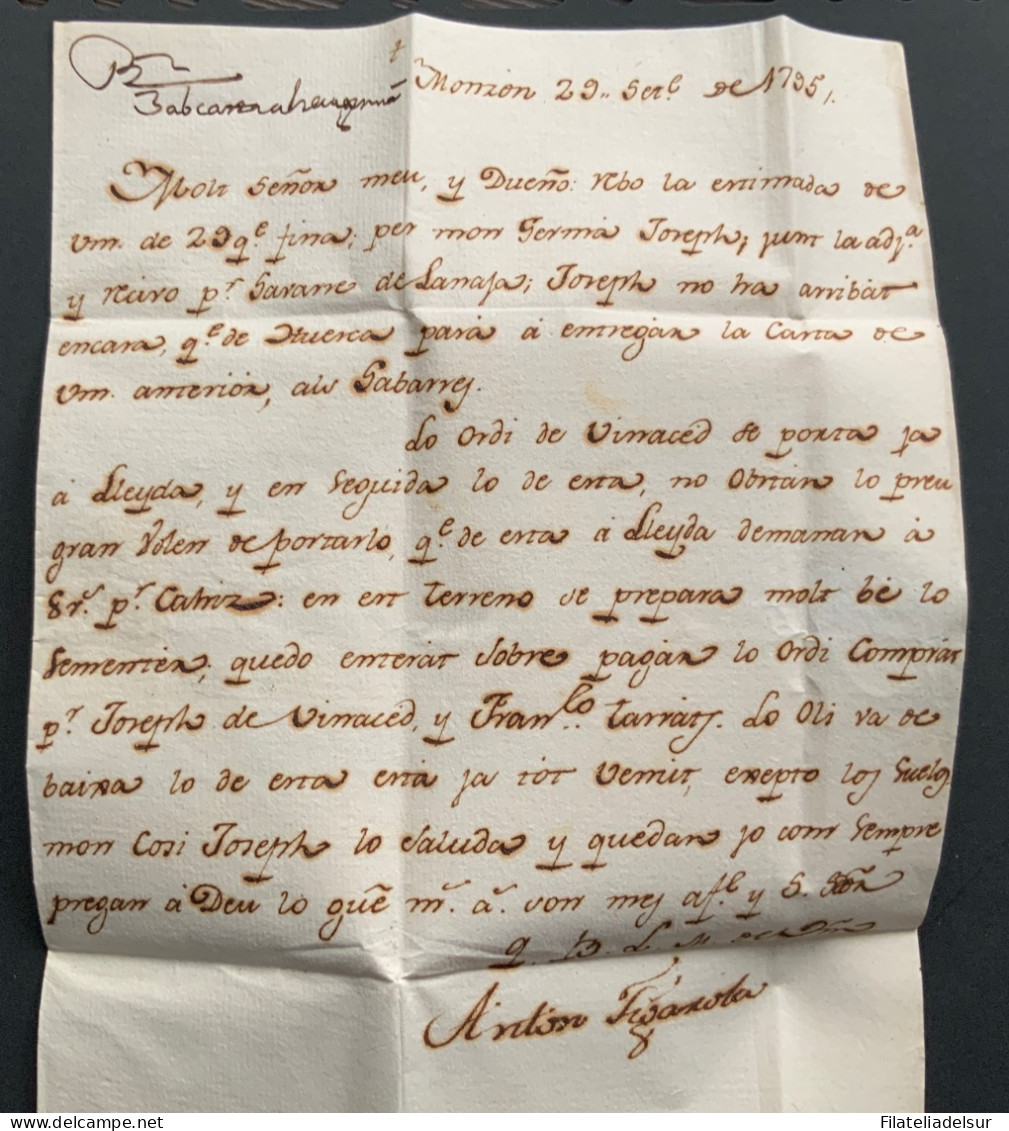 Monzon 29.. Setb. de 1795,,
Molt Señor meu, y Dueño: Rbo la estimada de
Vm. de 29 qe. fina; per mon Germá Joseph; junt la adja.
y recivo pr. Sarañe de Lanaja; Joseph no ha arribat
encara, qe. de Huesca pará á entregar la Carta de
Vm. anterior, als Gabarrej.
Lo Ordi de Vinaced se porta ja
á Lleyda, y en Seguida lo de esta, no Obstan lo preu
gran Volen de portarlo, qe. de esta á Lleyda demanan á
8rs. pr. Cahiz: en est terreno se prepara molt bé lo
Sementer; quedo enterat Sobre pagar lo Ordi Comprat
pr. Joseph de Vinaced, y Franco. Tarrats. Lo Oli va de
baixa lo de esta está ja tot Venut, exepto los Suelos
mon Cosi Joseph lo Saluda y quedan jo com Sempre
pregan á Deu lo gue ms. as. son mes afe. y S. Sor
q. B. L. M. de Vm
Anton Figarola
Filateliadelsur